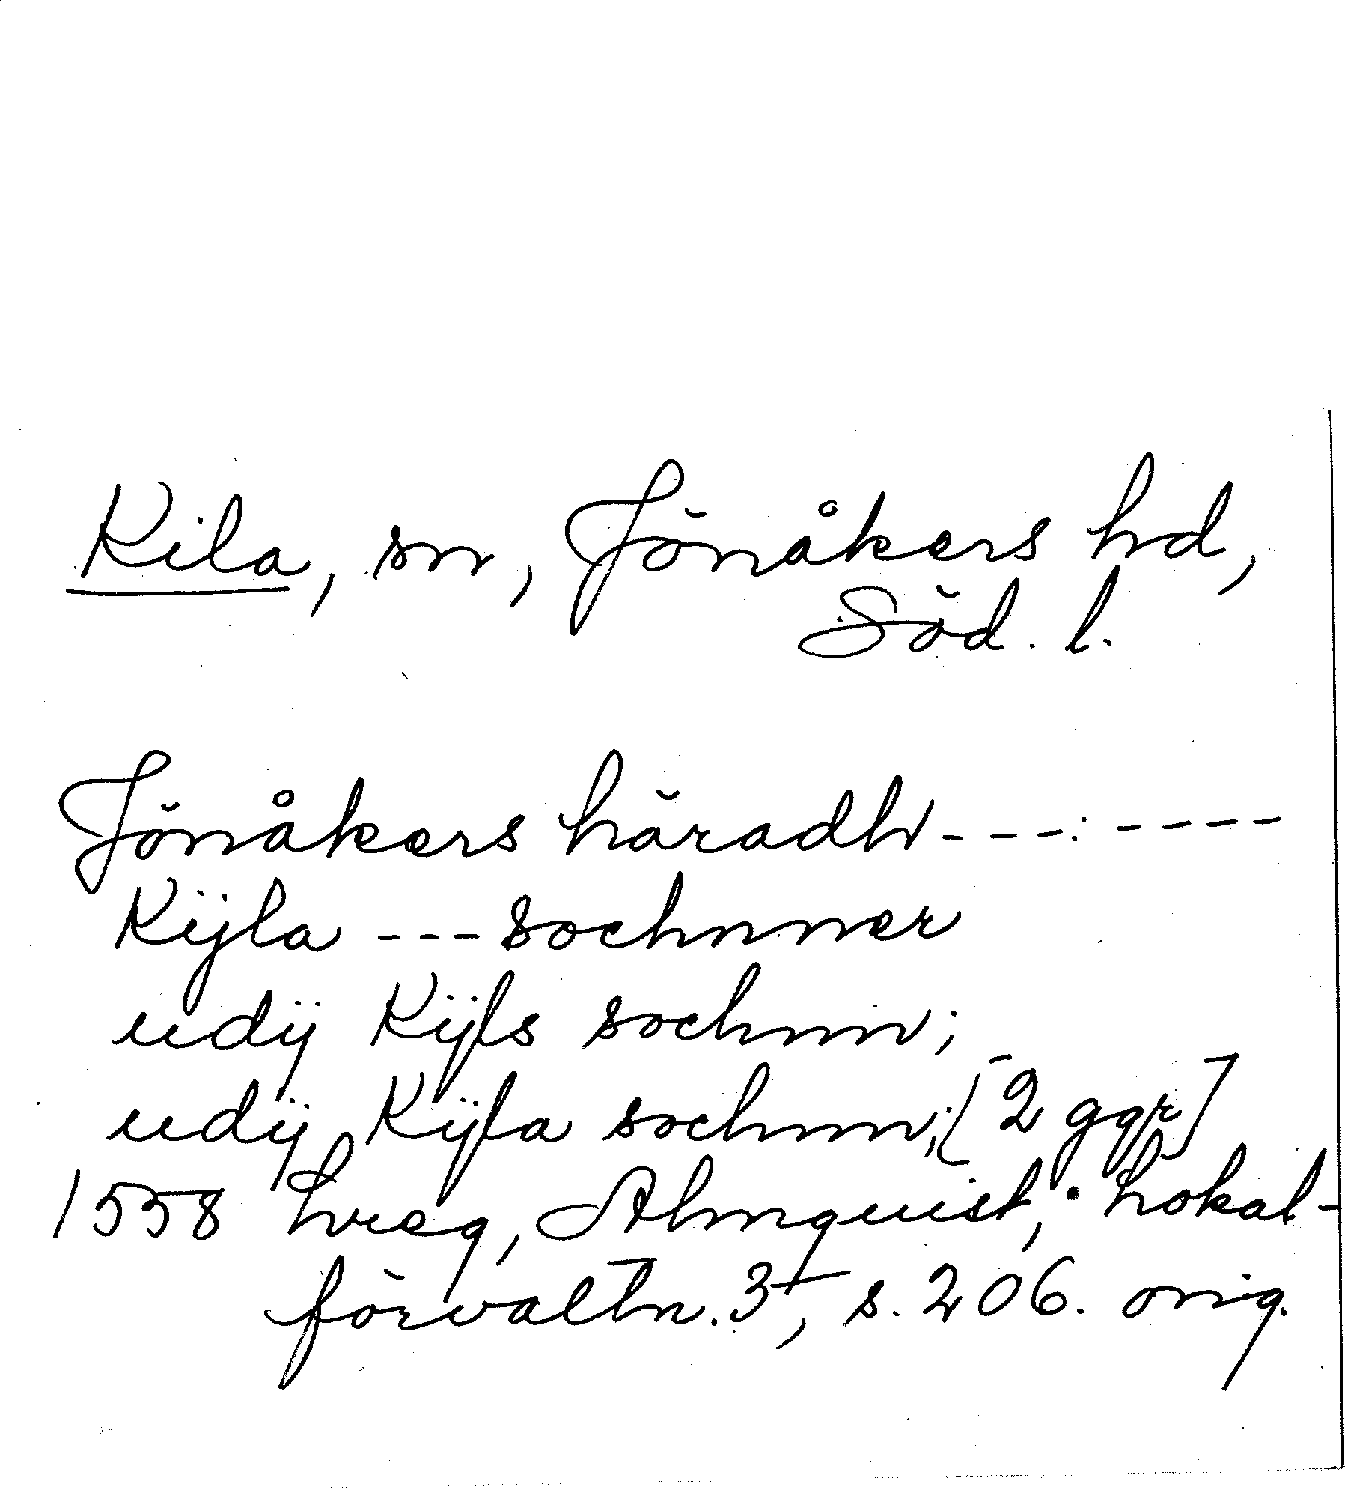 Kila, sn, Jönåkers hd,
Söd. l.
Jönåkers häradh---:----
Kijla ---sochnner
udij Kijls sochnn;
udij Kijla sochnn; [2 ggr]
1558 hreg, Almquist, Lokal-
förvaltn. 3, s. 206. orig.